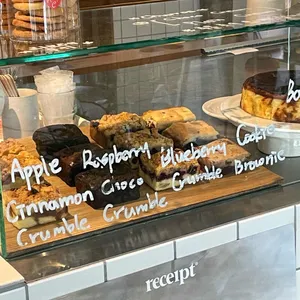 Apple Raspberry Blueberry Cookie
Cinnamon Choco Crumble Brownie
Crumble Crumble
receipt